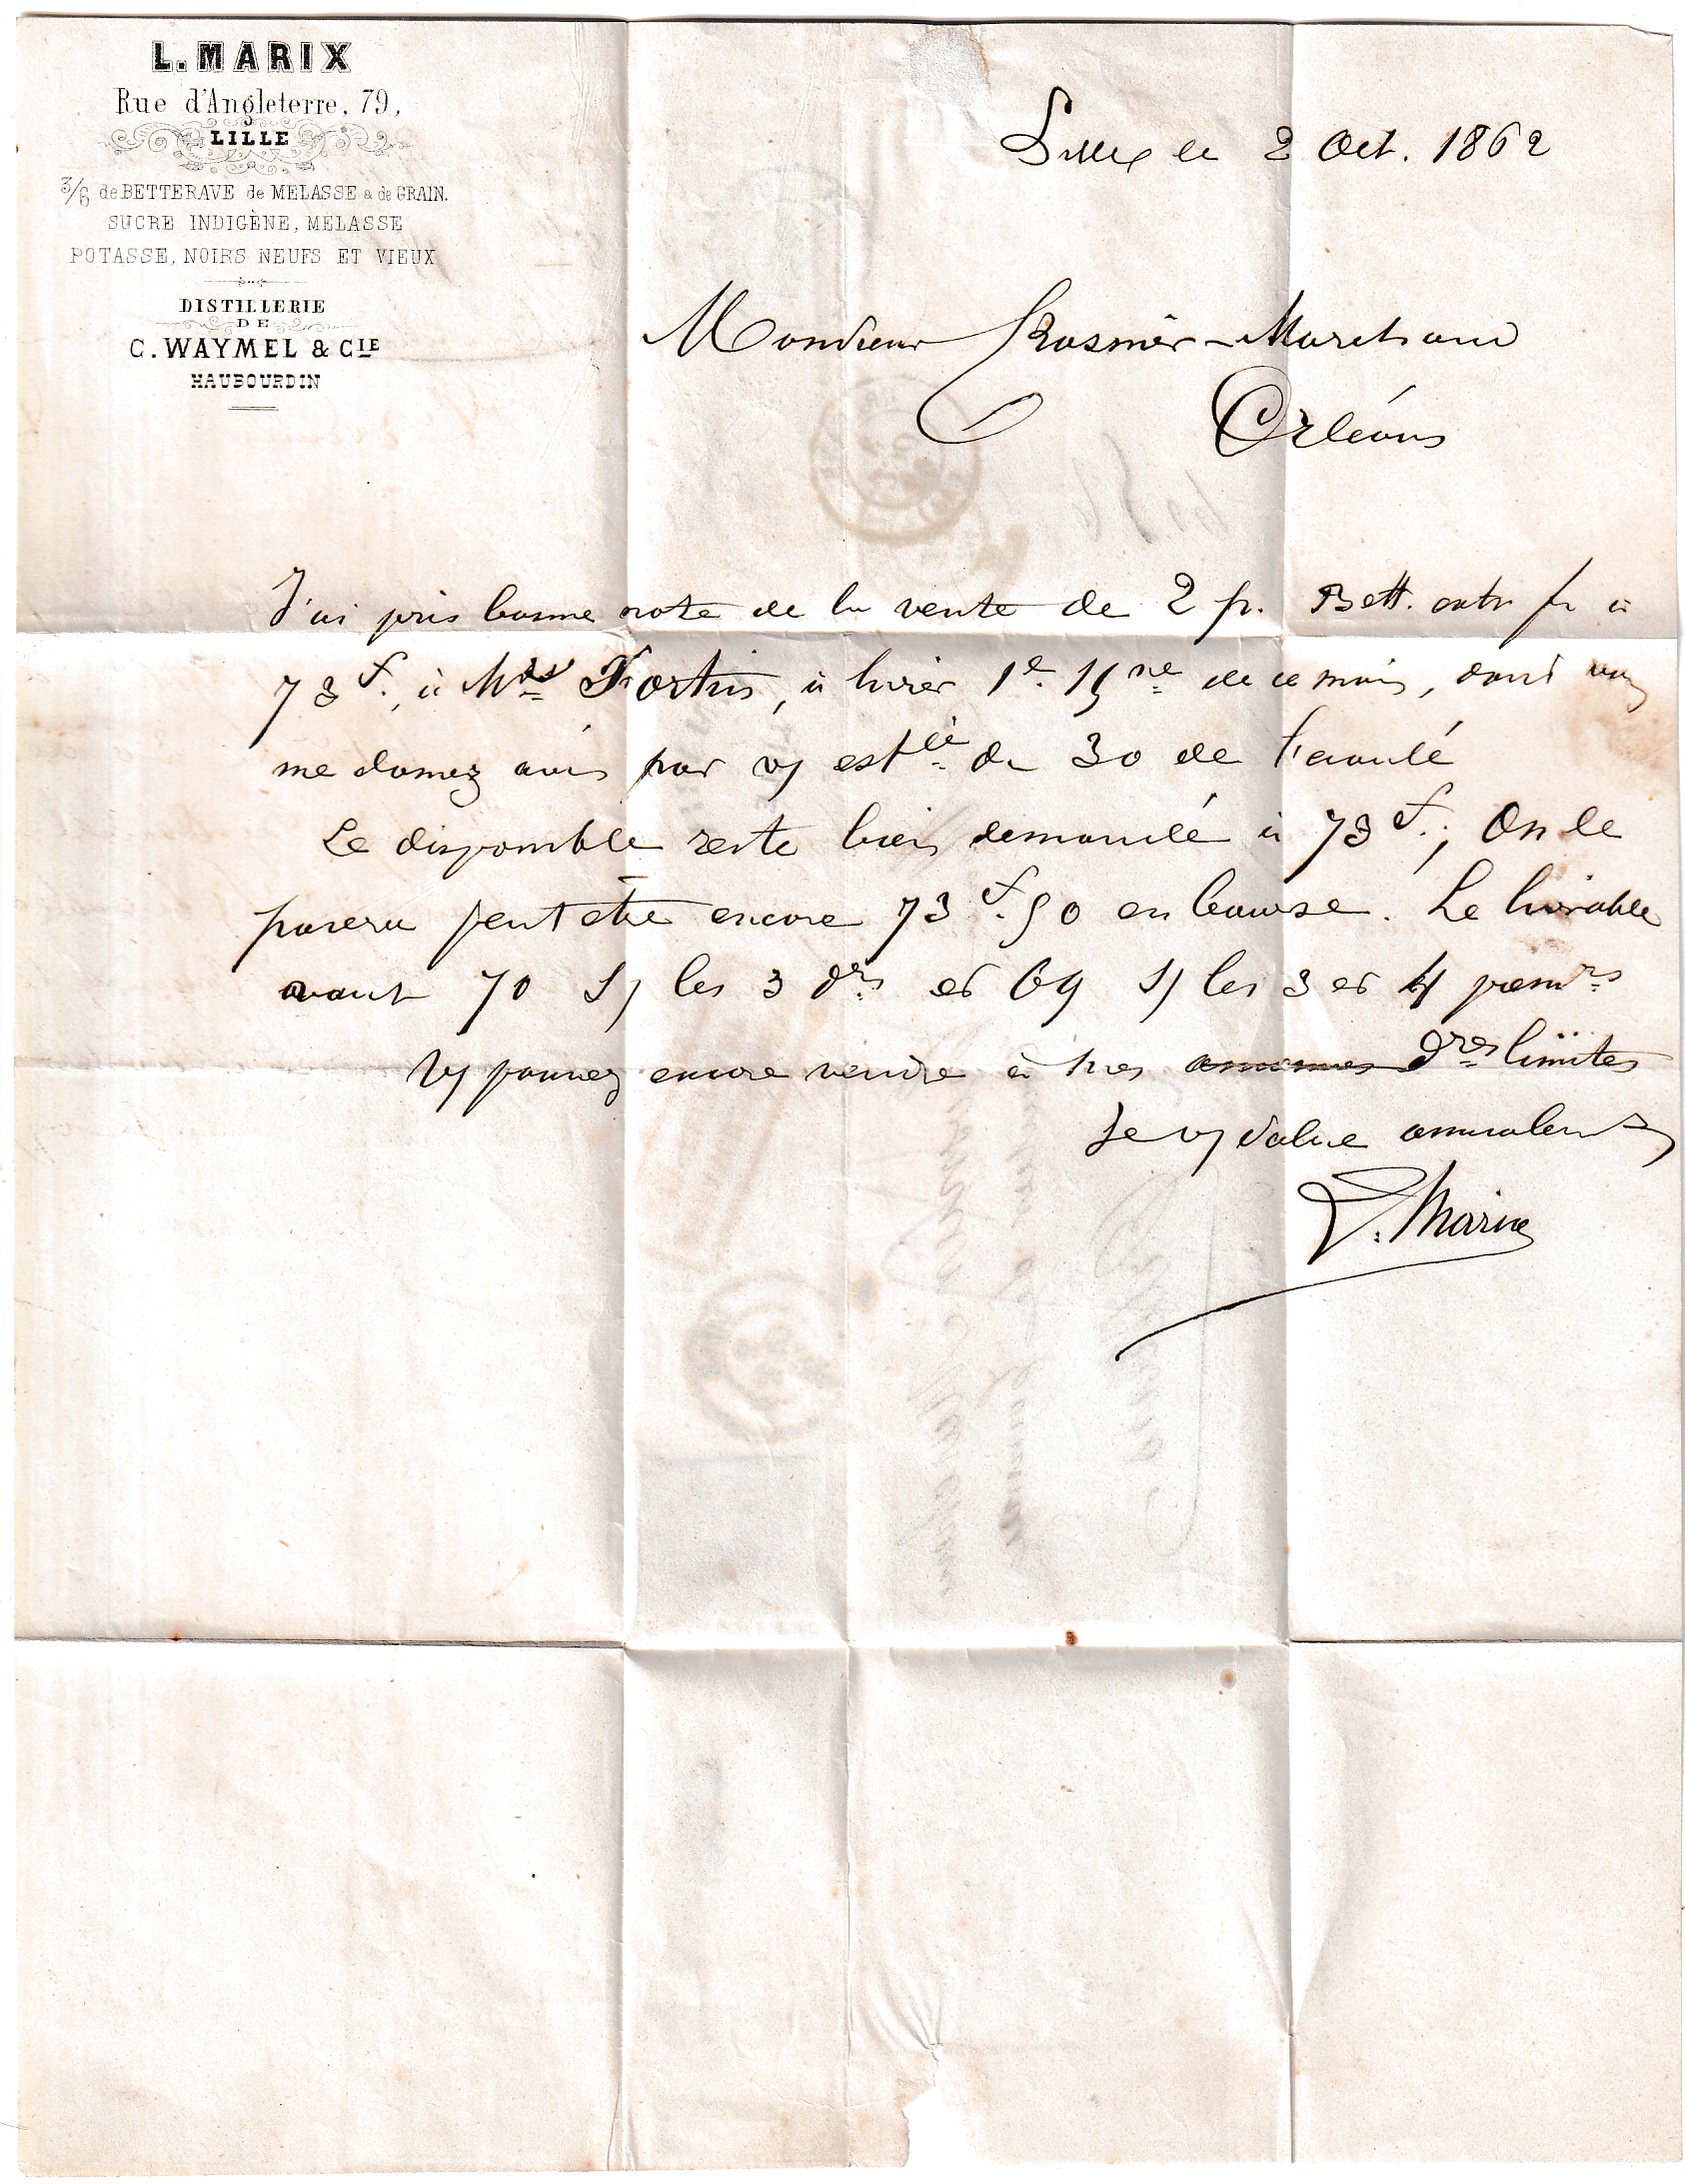 L. MARIX
Rue d'Angleterre, 79,
LILLE
3/6 de BETTERAVE de MELASSE & de GRAIN.
SUCRE INDIGÈNE, MELASSE
POTASSE, NOIRS NEUFS ET VIEUX
DISTILLERIE
DE
C. WAYMEL & CIE
HAUBOURDIN
Lille le 2 Oct. 1862
Monsieur Rosnier-Marchand
Orléans
J'ai pris bonne note de la vente de 2 p. Bett. extr fr à
73 f. à Mrs Fortin, à livrer 1e 15ne de ce mois, dont vous
me donnez avis par vy estée du 30 de l'écoulé
Le disponible reste bien demandé à 73 f.; On le
paiera peut être encore 73 f. 50 en bourse. Le livrable
vaut 70 s/ les 3 drs et 69 s/ les 3 et 4 premrs
Vy pouvez encore vendre à mes dres limites
Je vy salue amicalement
L. Marix